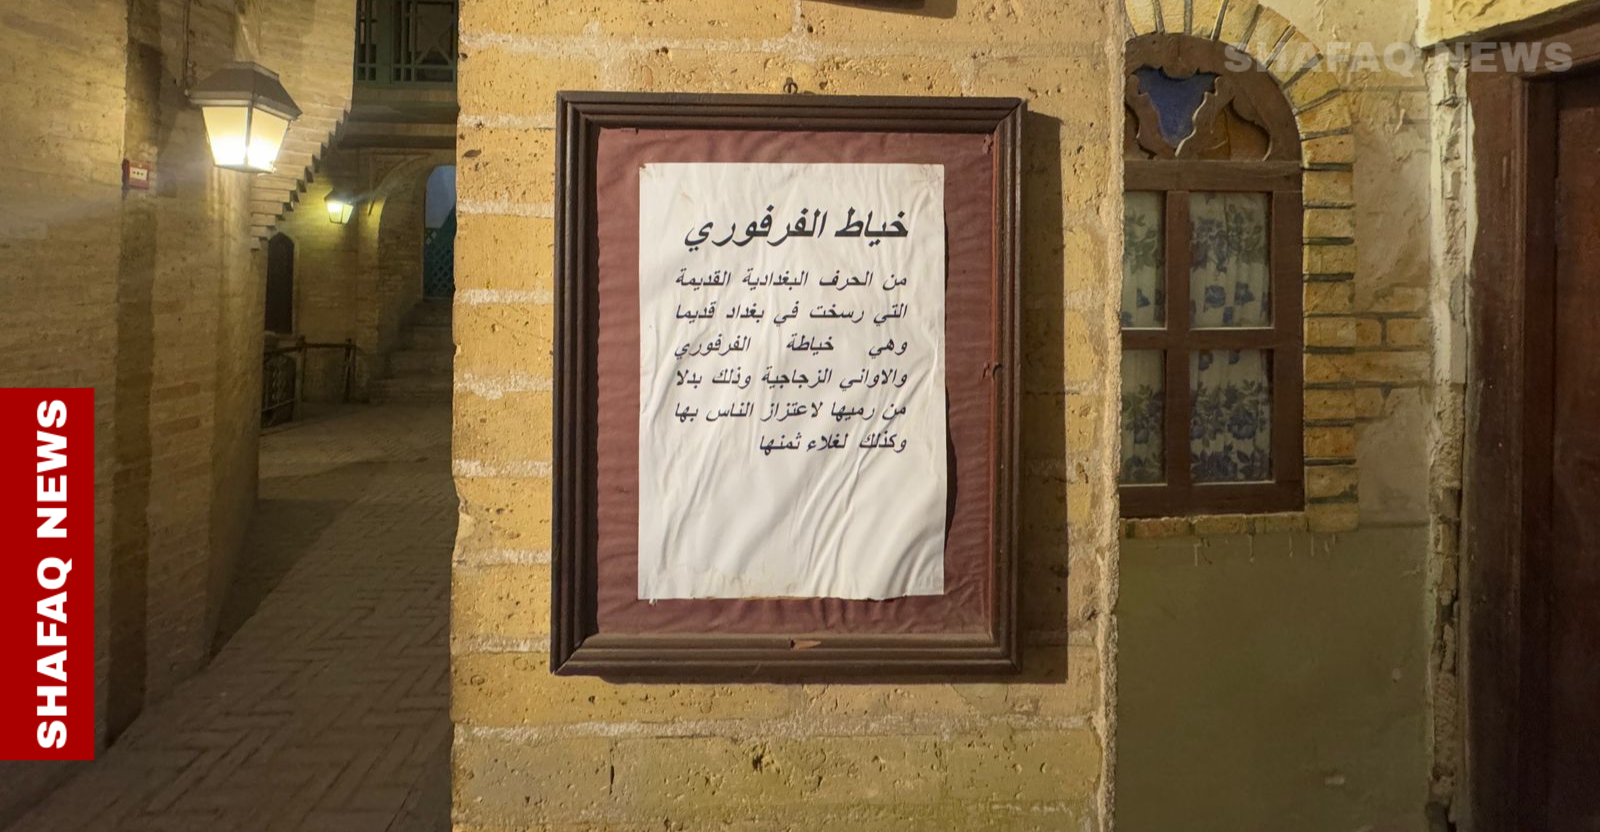 SHAFAQ NEWS
خياط الفرفوري
من الحرف البغدادية القديمة
التي رسخت في بغداد قديما
وهي خياطة الفرفوري
والاواني الزجاجية وذلك بدلا
من رميها لاعتزاز الناس بها
وكذلك لغلاء ثمنها
SHAFAQ NEWS